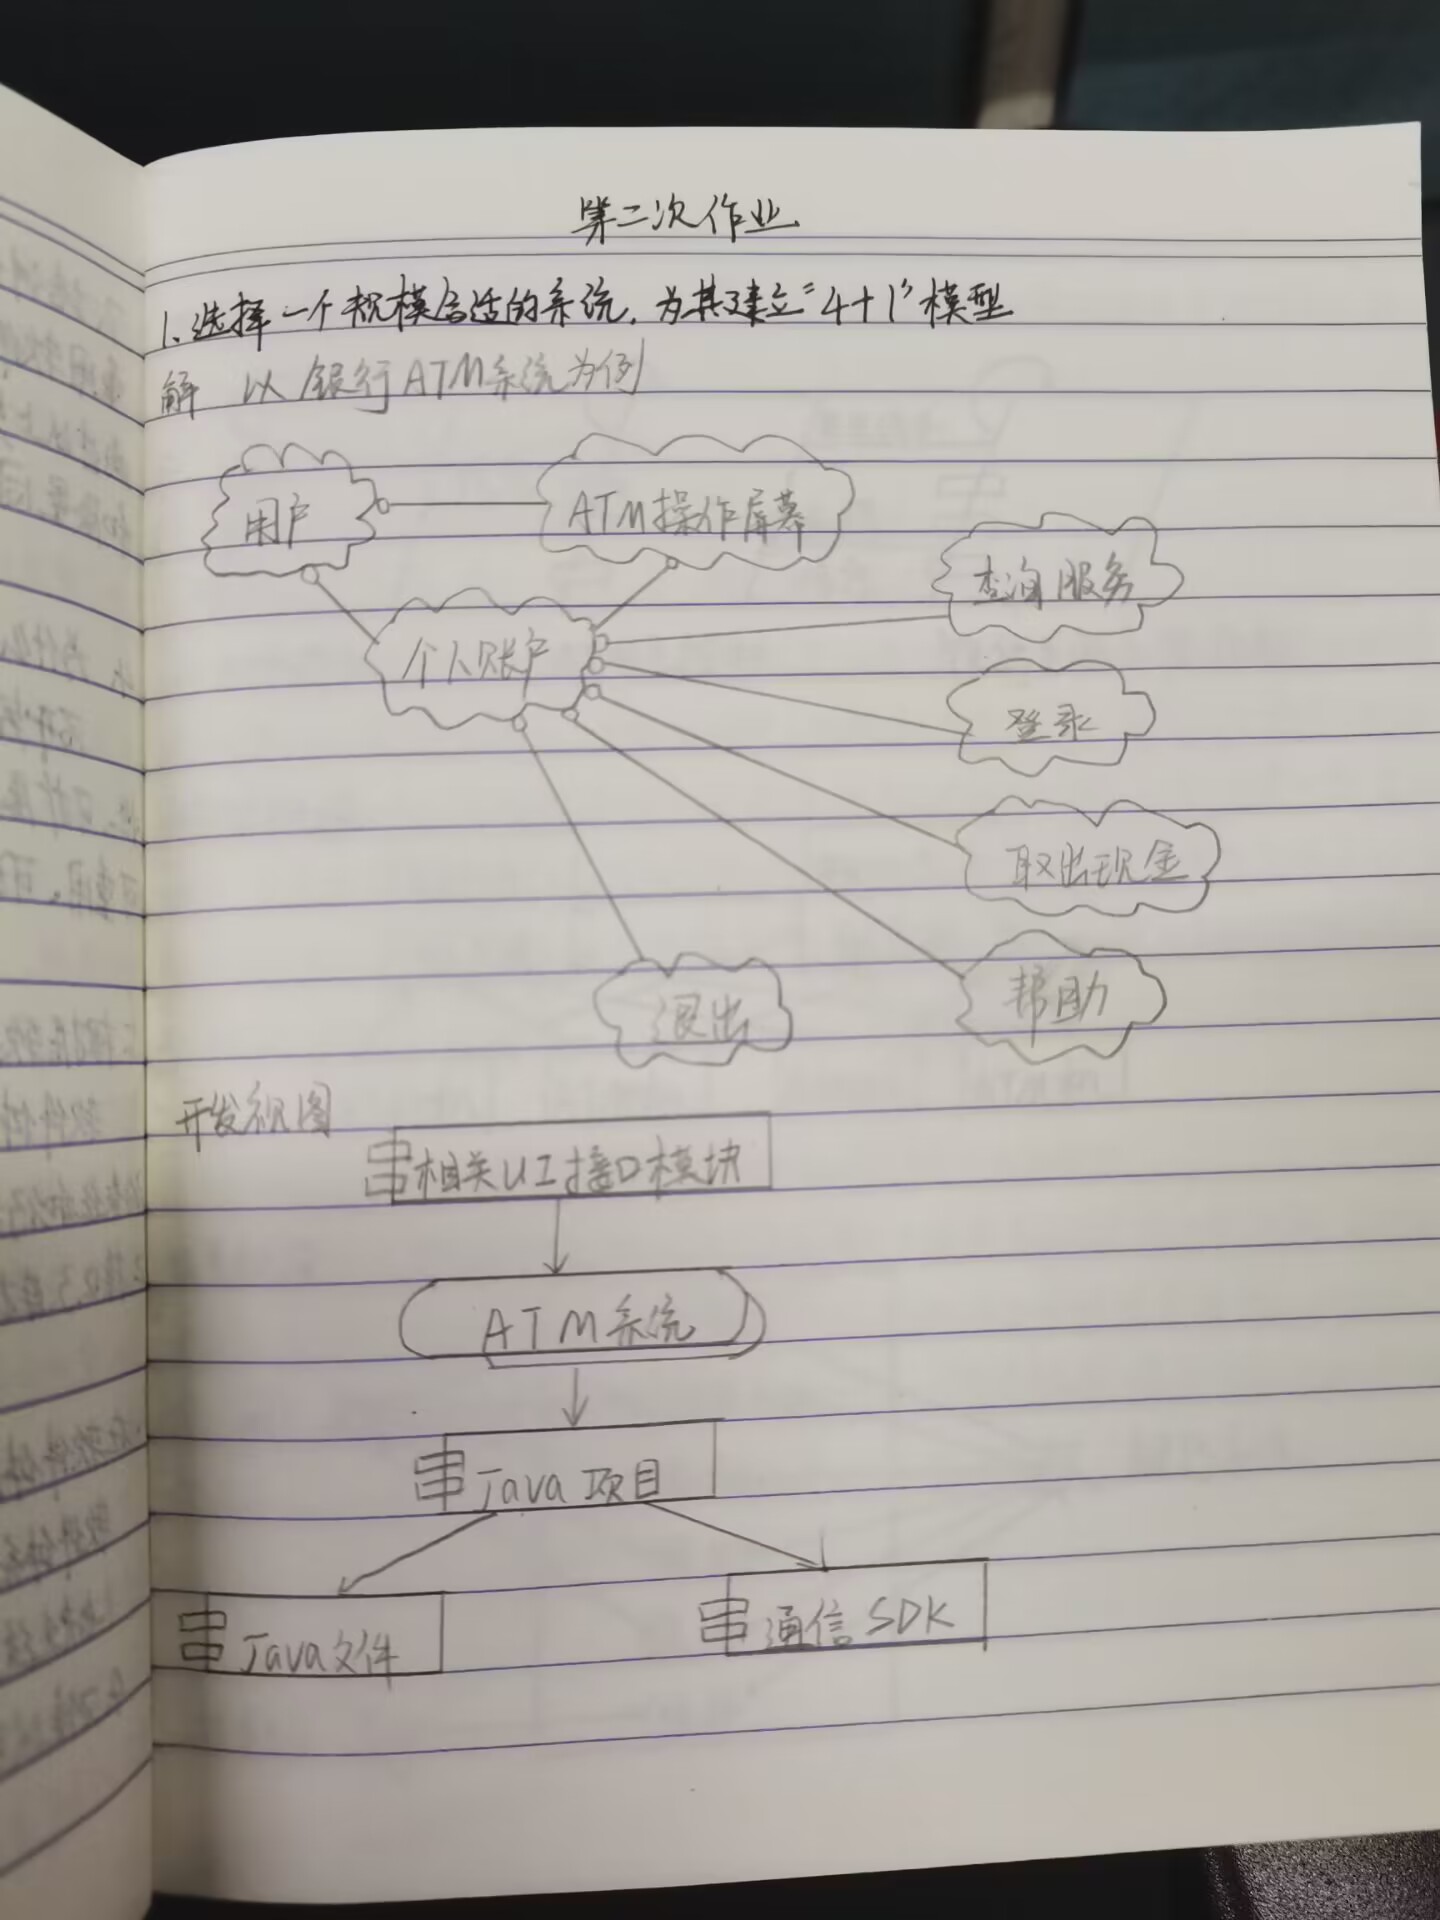 第二次作业
1.选择一个规模合适的系统,为其建立"4+1"模型
解 以银行ATM系统为例
用户
ATM操作屏幕
查询服务
个人账户
登录
取出现金
帮助
退出
开发视图
相关UI接口模块
ATM系统
Java项目
Java文件
通信SDK